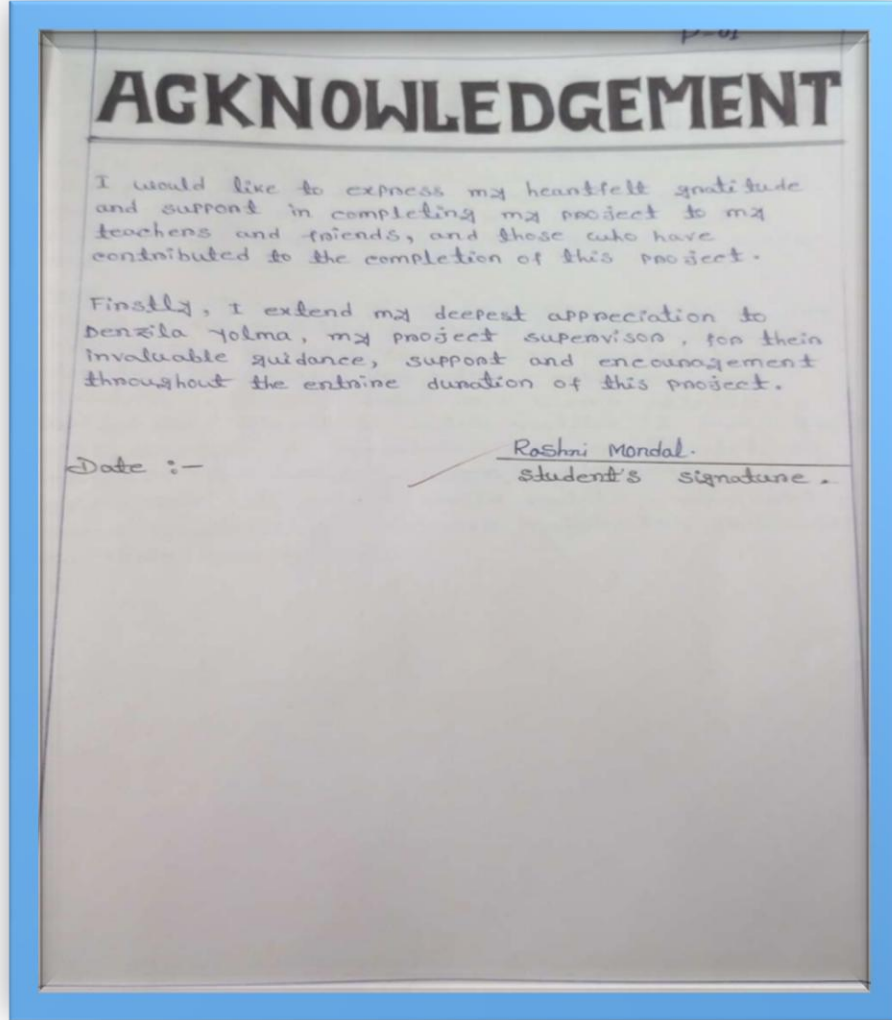 P-01
ACKNOWLEDGEMENT
I would like to express my heartfelt gratitude
and support in completing my project to my
teachers and friends, and those who have
contributed to the completion of this project.
Firstly, I extend my deepest appreciation to
Denzila Yolma, my project supervisor, for their
invaluable guidance, support and encouragement
throughout the entrire duration of this project.
Date :-
Rashri Mondal.
Student's signature.